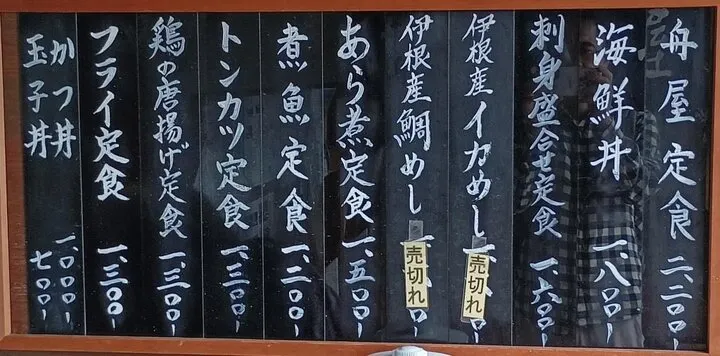 舟屋定食 二、二〇〇-
海鮮丼 一、八〇〇-
刺身盛合せ定食 一、六〇〇-
伊根産イカめし 売切れ
伊根産鯛めし 売切れ
あら煮定食 一、五〇〇-
煮魚定食 一、二〇〇-
トンカツ定食 一、三〇〇-
鶏の唐揚げ定食 一、三〇〇-
フライ定食 一、三〇〇-
かつ丼 一、〇〇〇-
玉子丼 七〇〇-